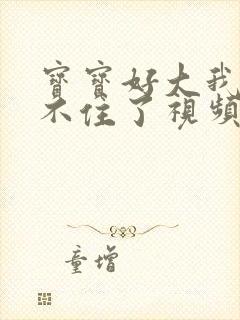 寶寶好大我
不住了視頻
童增